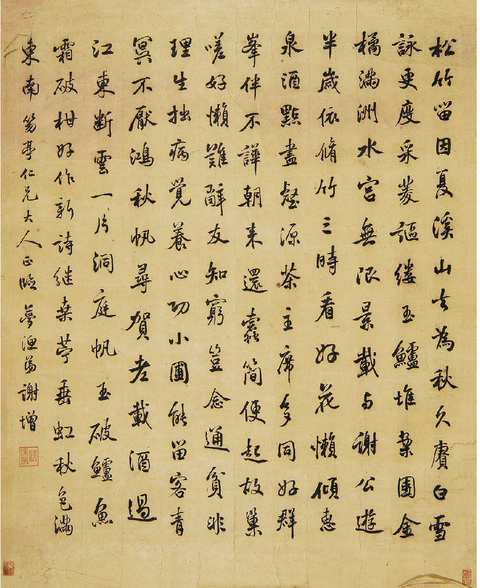 松竹留因夏溪山去為秋久賡白雪
詠更度采菱謳縷玉鱸堆案團金
橘滿洲水宮無限景載與謝公遊
半歲依脩竹三時看好花懶傾惠
泉酒點盡壑源茶主席多同好群
峯伴不譁朝来還蠹簡便起故巢
嗟好懶難辭友知窮豈念通貧非
理生拙病覺養心功小圃能留客青
冥不厭鴻秋帆尋賀老載酒過
江東斷雲一片洞庭帆玉破鱸魚
霜破柑好作新詩継桑苧垂虹秋色滿
東南 亭仁兄大人正臨 夢漁弟謝增